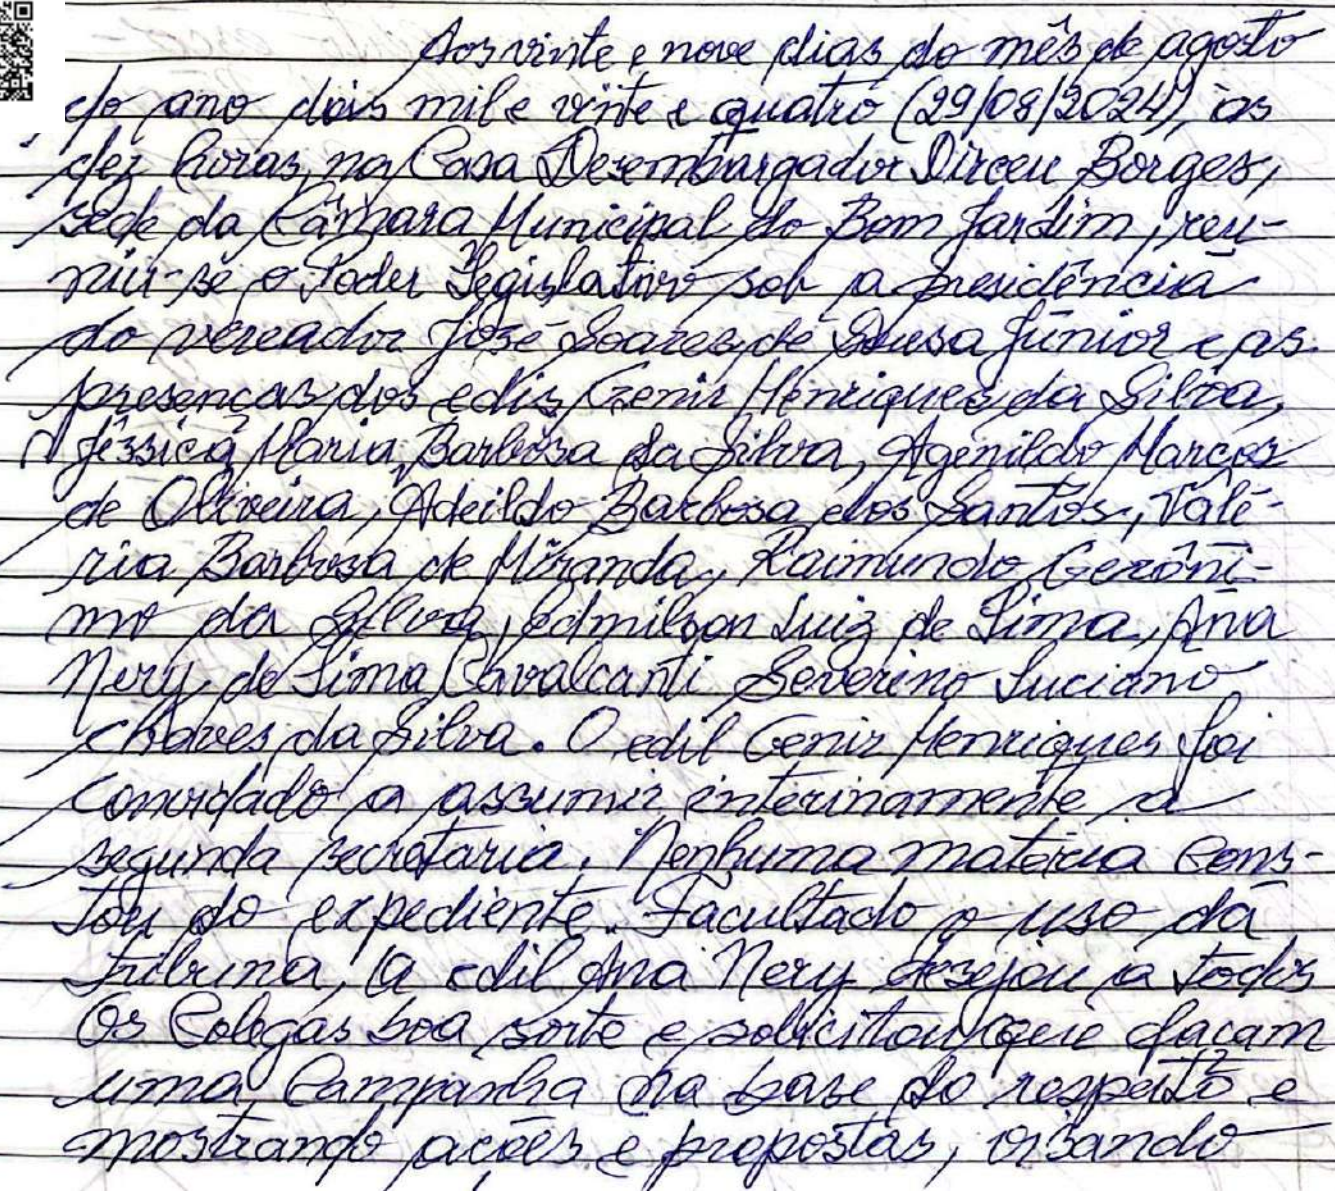 Aos vinte e nove dias do mês de agosto
do ano dois mil e vinte e quatro (29/08/2024), às
dez horas, na Casa Desembargador Dirceu Borges,
sede da Câmara Municipal do Bom Jardim, reu-
niu-se o Poder Legislativo sob a presidência
do vereador José Soares de Sousa Júnior e as
presenças dos edis Genir Henriques da Silva,
Jéssica Maria Barbosa da Silva, Agenildo Marcos
de Oliveira, Adeildo Barbosa dos Santos, Valé-
ria Barbosa de Miranda, Raimundo Gerôni-
mo da Silva, Edmilson Luiz de Lima, Ana
Nery de Lima Cavalcanti Severino Luciano
Chaves da Silva. O edil Genir Henriques foi
convidado a assumir interinamente a
segunda secretaria. Nenhuma matéria cons-
tou do expediente. Facultado o uso da
tribuna, a edil Ana Nery desejou a todos
os colegas boa sorte e solicitou que façam
uma campanha na base do respeito e
mostrando ações e propostas, visando